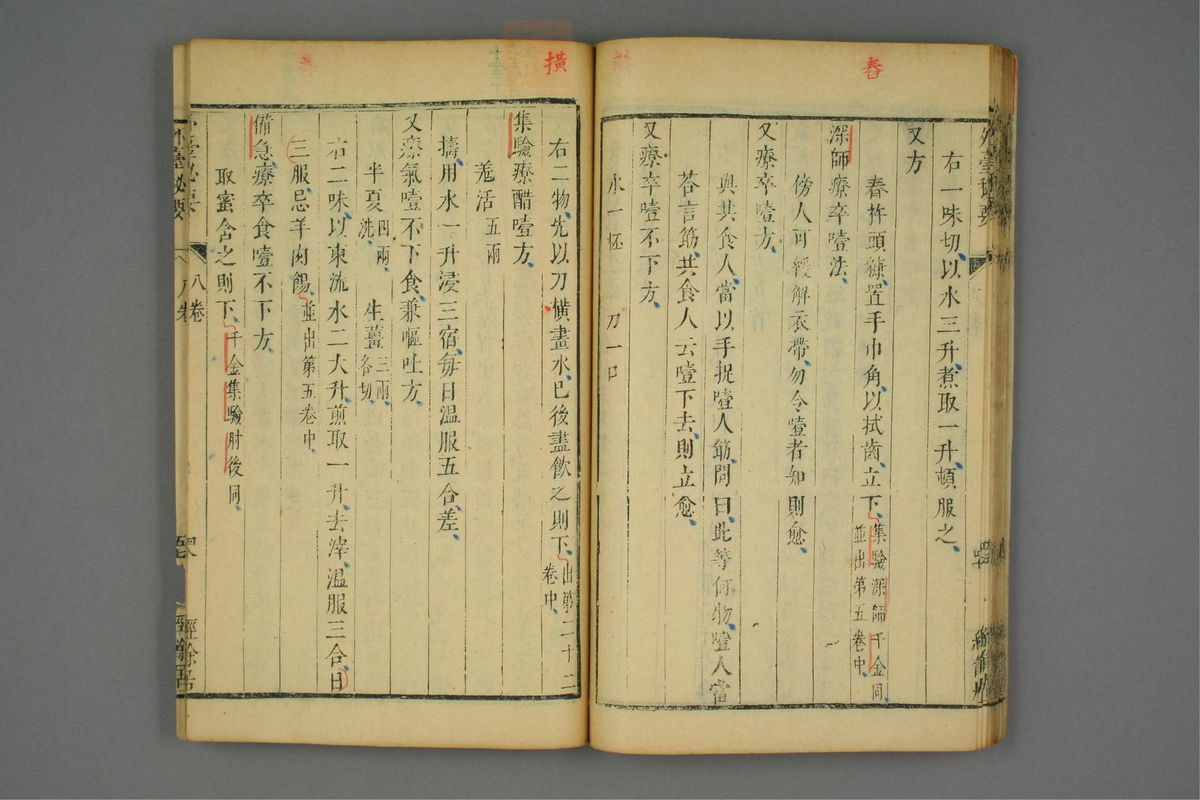 舂
右一味切以水三升煮取一升頓服之
又方
舂杵頭糠置手巾角以拭齒立下集驗深師千金同
並出第五卷中
深師療卒噎法
傍人可緩解衣帶勿令噎者知則愈
又療卒噎方
與共食人當以手捉噎人筯問曰此等何物噎人當
荅言筯共食人云噎下去則立愈
又療卒噎不下方
水一杯 刀一口
橫
右二物先以刀橫畫水已後盡飲之則下出第二十二
卷中
集驗療醋噎方
羗活五兩
擣用水一升浸三宿每日温服五合差
又療氣噎不下食兼嘔吐方
半夏四兩
洗 生薑三兩
各切
右二味以東流水二大升煎取一升去滓温服三合日
三服忌羊肉餳並出第五卷中
備急療卒食噎不下方
取蜜含之則下千金集驗肘後同
外臺祕要
八卷
經餘居